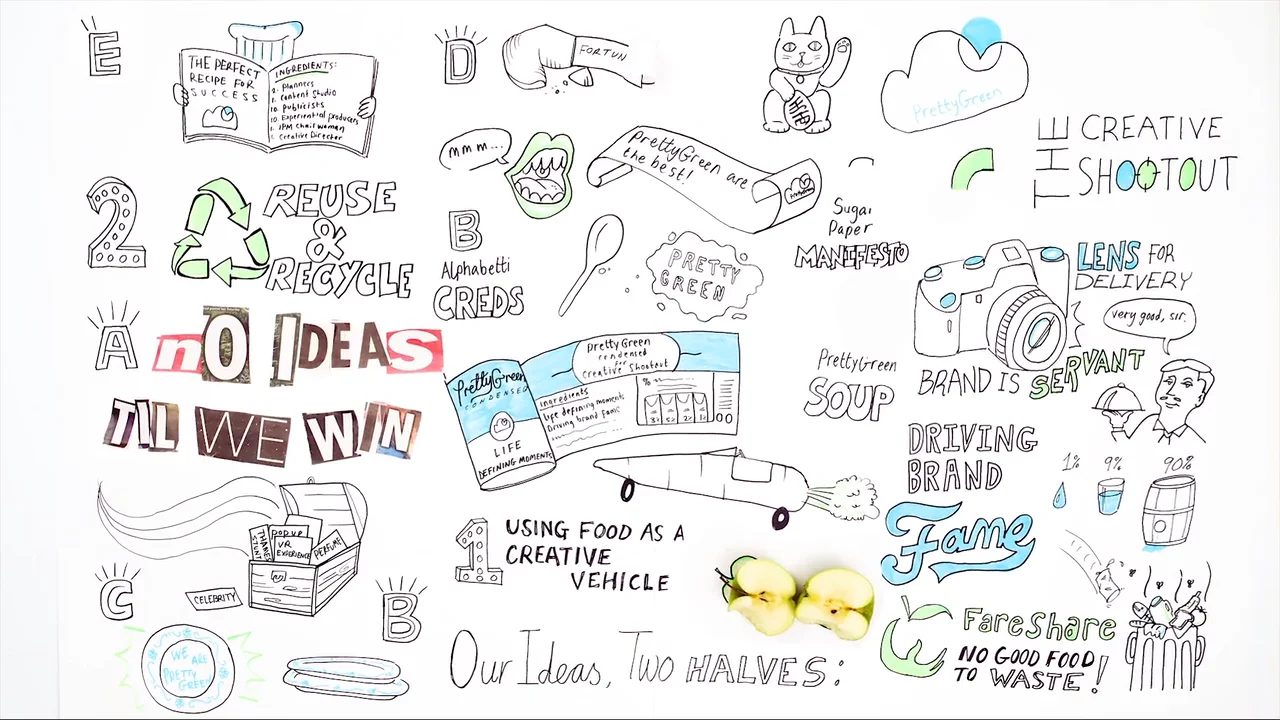 E
THE PERFECT
RECIPE FOR
SUCCESS
INGREDIENTS:
2. Planners
1. Content Studio
10. Publicists
10. Experiential producers
1. IPM Chairwoman
1. Creative Director
D
FORTUN
PrettyGreen
THE
CREATIVE
SHOOTOUT
mmm...
prettyGreen are
the best!
2
REUSE
&
RECYCLE
B
Alphabetti
CREDS
PRETTY
GREEN
Sugar
Paper
MANIFESTO
LENS FOR
DELIVERY
very good, sir.
BRAND IS SERVANT
A
nO IDEAS
TIL WE WIN
PrettyGreen
CONDENSED
LIFE
DEFINING MOMENTS
prettyGreen
condensed
for
Creative Shootout
ingredients
life defining moments
Driving brand fame
PrettyGreen
SOUP
DRIVING
BRAND
Fame
1%
9%
90%
THAMES
STUNT
popup
VR
EXPERIENCE
PERFUME
CELEBRITY
C
B
WE ARE
PRETTY
GREEN
1
USING FOOD AS A
CREATIVE
VEHICLE
Our Ideas, Two HALVES:
FareShare
NO GOOD FOOD
TO WASTE!